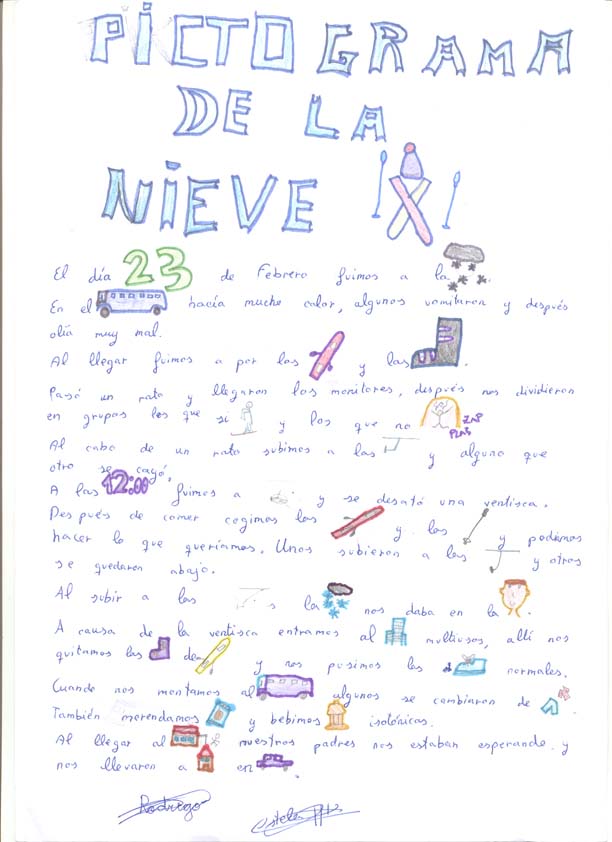 PICTOGRAMA
DE LA
NIEVE
El día 23 de Febrero fuimos a la .
En el hacía mucho calor, algunos vomitaron y después
olía muy mal.
Al llegar fuimos a por los y las .
Pasó un rato y llegaron los monitores, después nos dividieron
en grupos los que si y los que no ZAP
PLAS
Al cabo de un rato subimos a las y alguno que
otro se cayó.
A las 12:00 fuimos a y se desató una ventisca.
Después de comer cogimos los y los y podíamos
hacer lo que queríamos. Unos subieron a las y otros
se quedaron abajo.
Al subir a las s la nos daba en la .
A causa de la ventisca entramos al multiusos, allí nos
quitamos las de y nos pusimos las normales.
Cuando nos montamos al algunos se cambiaron de .
También merendamos y bebimos isotónicas.
Al llegar al nuestros padres nos estaban esperando y
nos llevaron a en .
Rodrigo